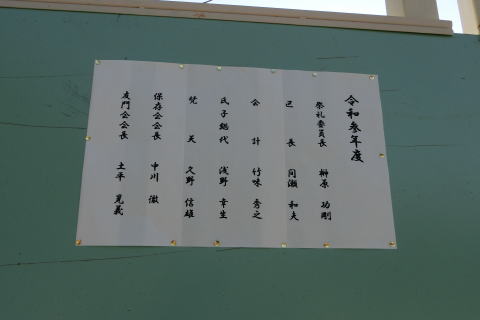 令和参年度
祭礼委員長 榊原 功剛
区長 間瀬 和夫
会計 竹味 秀之
氏子総代 浅野 幸生
梵天 久野 信雄
保存会会長 中川 徹
友門会会長 土平 晃義